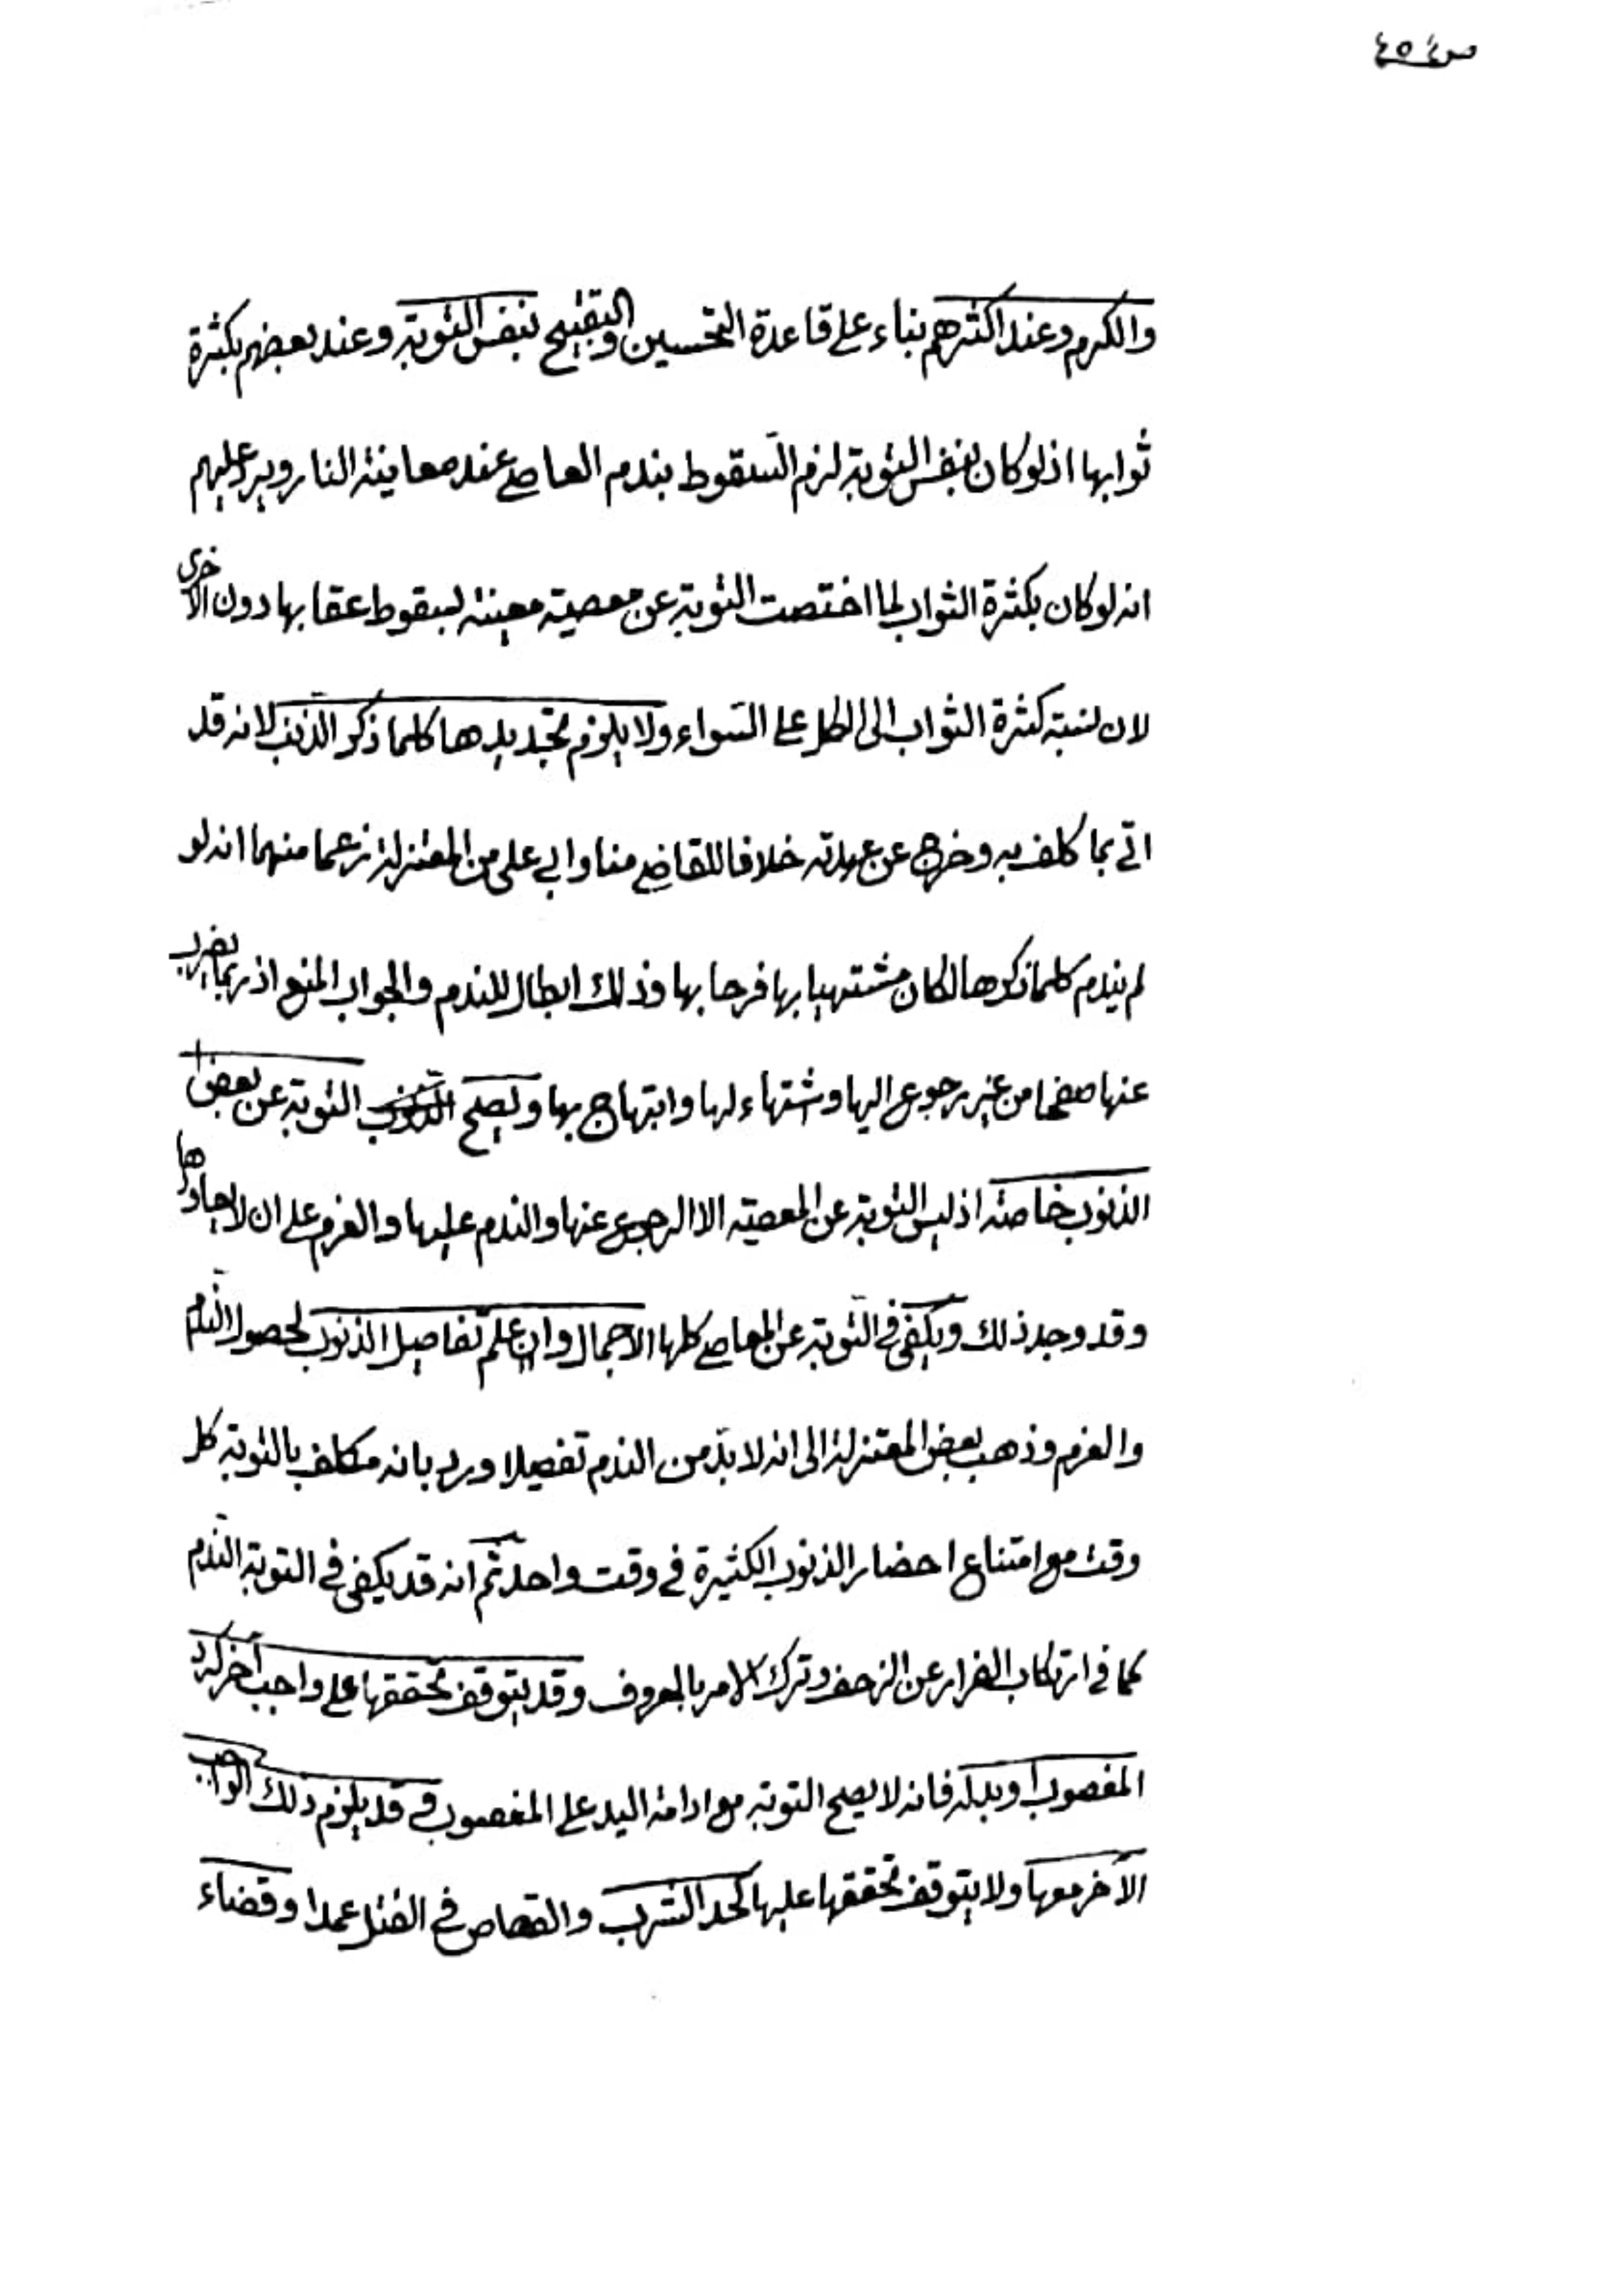 ص ٤٥٤
والكرم وعند اكثرهم بناء على قاعدة التحسين والتقبيح بنفس التوبة وعند بعضهم بكثرة
ثوابها اذ لو كان بنفس التوبة لزم السّقوط بندم العاصي عند معاينة النار ويرد عليهم
انه لو كان بكثرة الثواب لما اختصت التوبة عن معصية معينة بسقوط عقابها دون الاخرى
لان نسبة كثرة الثواب الى الكل على السّواء ولا يلزم تجديدها كلما ذكر الذّنب لانه قد
اتى بما كلف به وخرج عن عهدته خلافا للقاضي منا وابي علي من المعتزلة زعما منهما انه لو
لم يندم كلما ذكرها لكان مشتهيا بها فرحا بها وذلك ابطال للندم والجواب المنع اذ ربما يضرب
عنها صفحا من غير رجوع اليها وشتهاء لها وابتهاج بها ويصح التوبة عن بعض
الذنوب خاصة اذ ليس التوبة عن المعصية الا الرجوع عنها والندم عليها والعزم على ان لا يعاودها
وقد وجد ذلك ويكفي في التّوبة عن المعاصي كلها الاجمال وان علم تفاصيل الذنوب لحصول النّدم
والعزم وذهب بعض المعتزلة الى انه لا بدّ من الندم تفصيلا ورد بانه مكلف بالتوبة كل
وقت مع امتناع احضار الذنوب الكثيرة في وقت واحد ثم انه قد يكفي في التوبة النّدم
كما في ارتكاب الفرار عن الزحف وترك الامر بالمعروف وقد يتوقف تحققها على واجب آخر كرد
المغصوب او بدله فانه لا يصح التوبة مع ادامة اليد على المغصوب وقد يلزم ذلك الواجب
الآخر معها ولا يتوقف تحققها عليها كحد الشرب والقصاص في القتل عمدا وقضاء